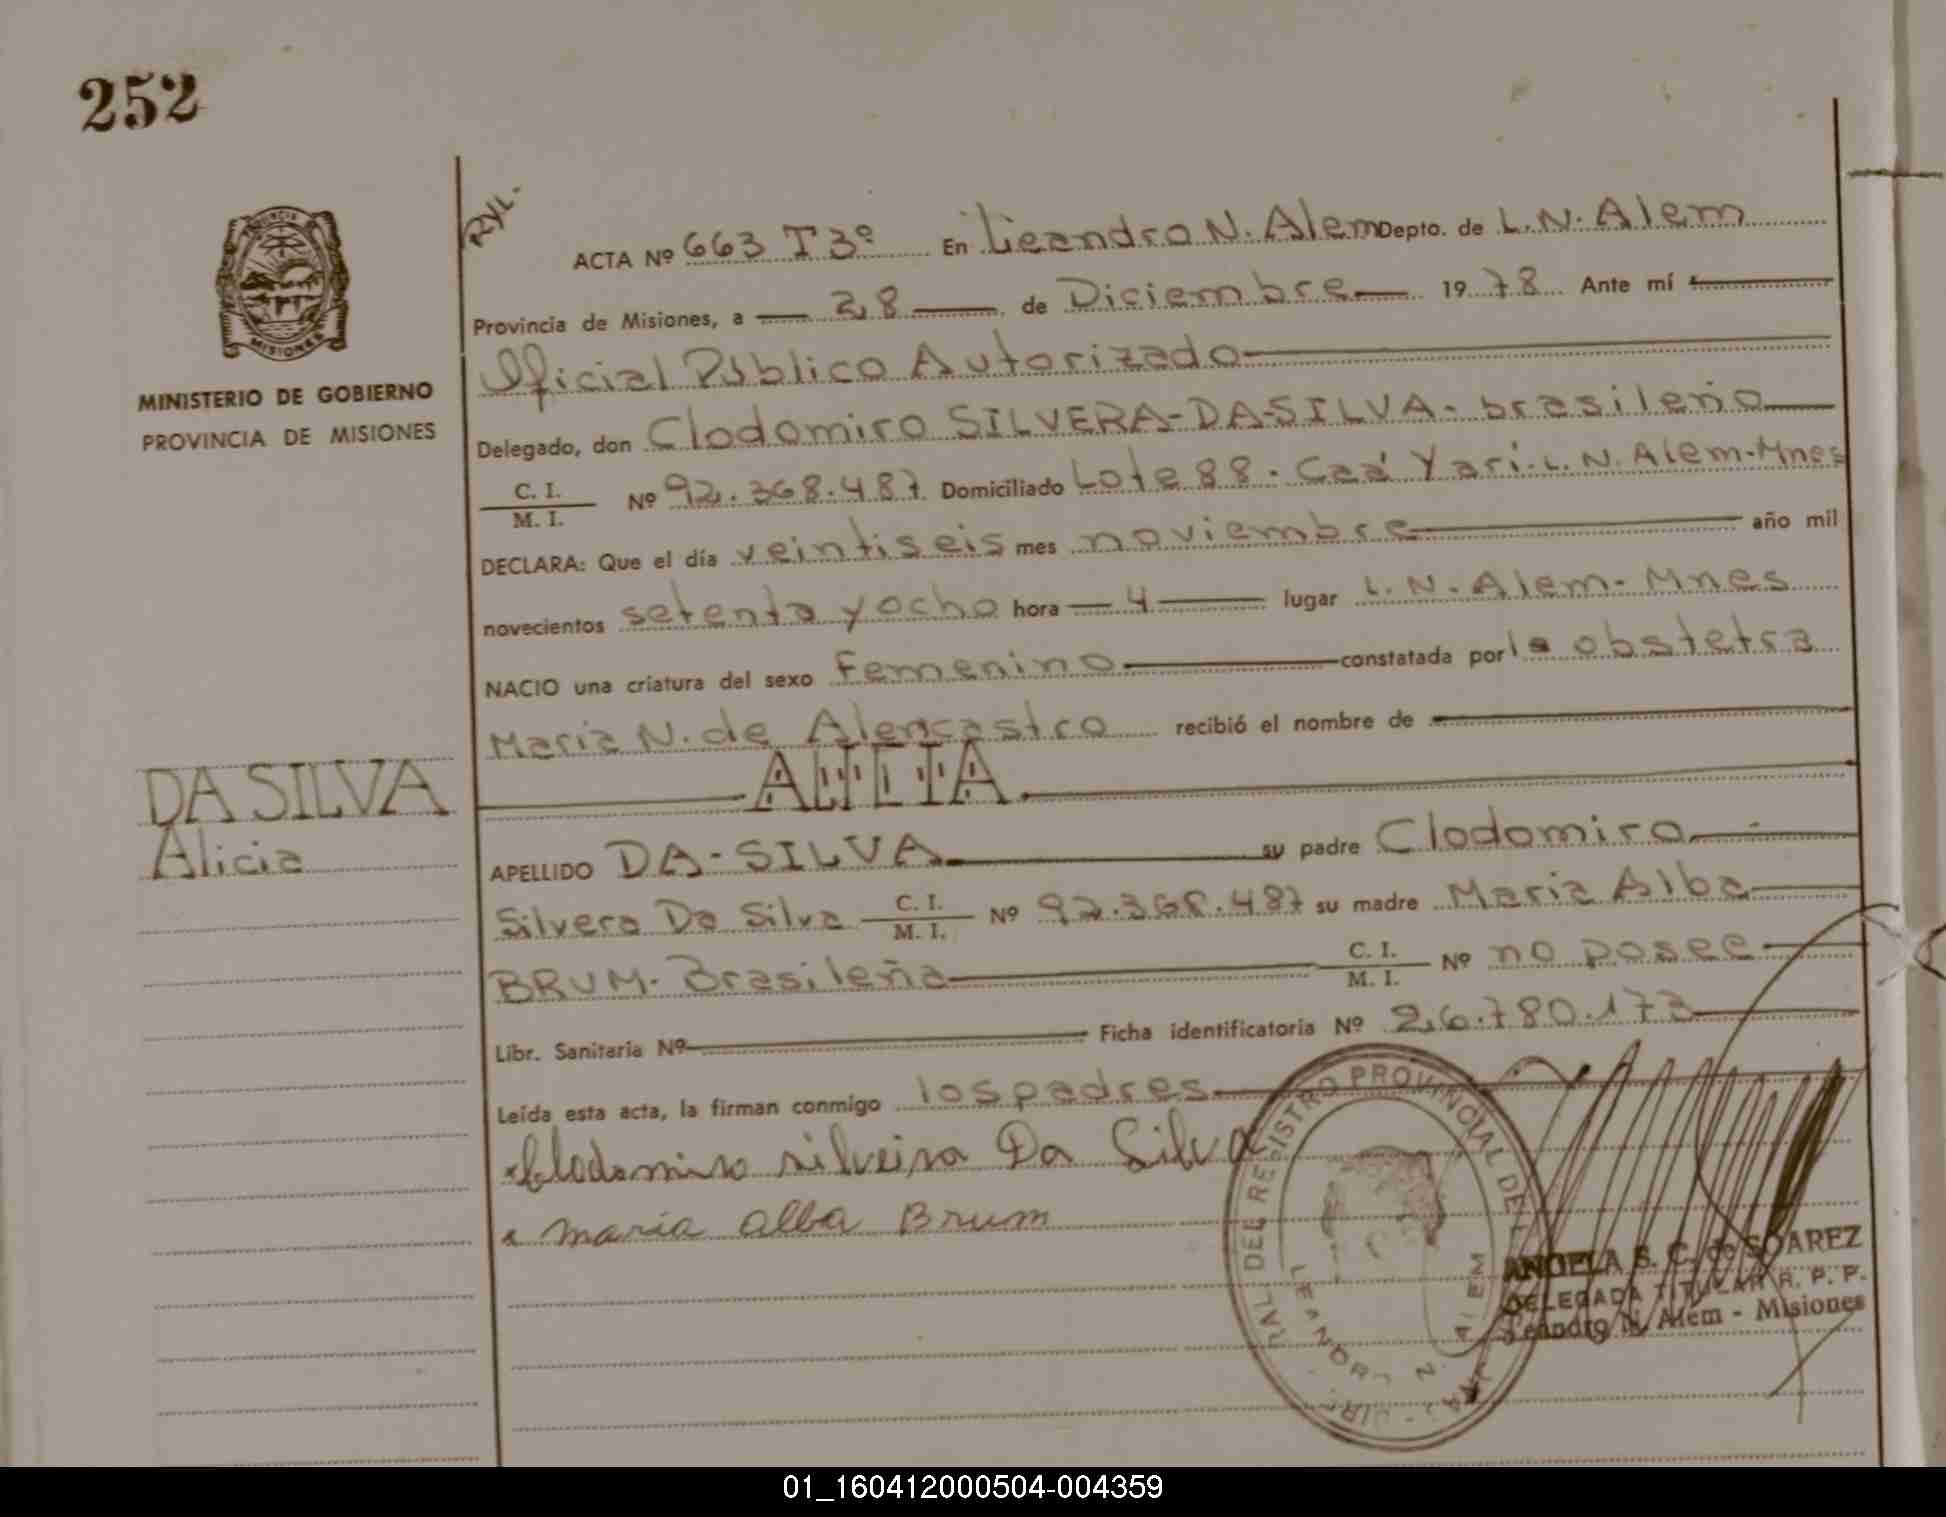 252
MISIONES
MINISTERIO DE GOBIERNO
PROVINCIA DE MISIONES
DA SILVA
Alicia
ACTA Nº 663 T 3º En Leandro N. Alem Depto. de L. N. Alem
Provincia de Misiones, a 28 de Diciembre 1978 Ante mí
Oficial Público Autorizado
Delegado, don Clodomiro SILVERA-DA-SILVA- brasileño
C. I. / M. I. Nº 92.368.487 Domiciliado Lote 88 - Caá Yari-L. N. Alem-Mnes
DECLARA: Que el día veintiseis mes noviembre año mil
novecientos setenta y ocho hora 4 lugar L. N. Alem- Mnes
NACIO una criatura del sexo Femenino constatada por la obstetra
Maria N. de Alencastro recibió el nombre de
APELLIDO DA-SILVA su padre Clodomiro
Silvera Da Silva C. I. / M. I. Nº 92.368.487 su madre Maria Alba
BRUM- Brasileña C. I. / M. I. Nº no posee
Libr. Sanitaria Nº Ficha identificatoria Nº 26.780.173
Leída esta acta, la firman conmigo los padres
Clodomiro silveira Da Silva
maria alba Brum
DEL REGISTRO PROVINCIAL DE
LEANDRO N. ALEM
ANGELA S. C. de SOAREZ
DELEGADA TITULAR R. P. P.
Leandro N. Alem - Misiones
01_160412000504-004359